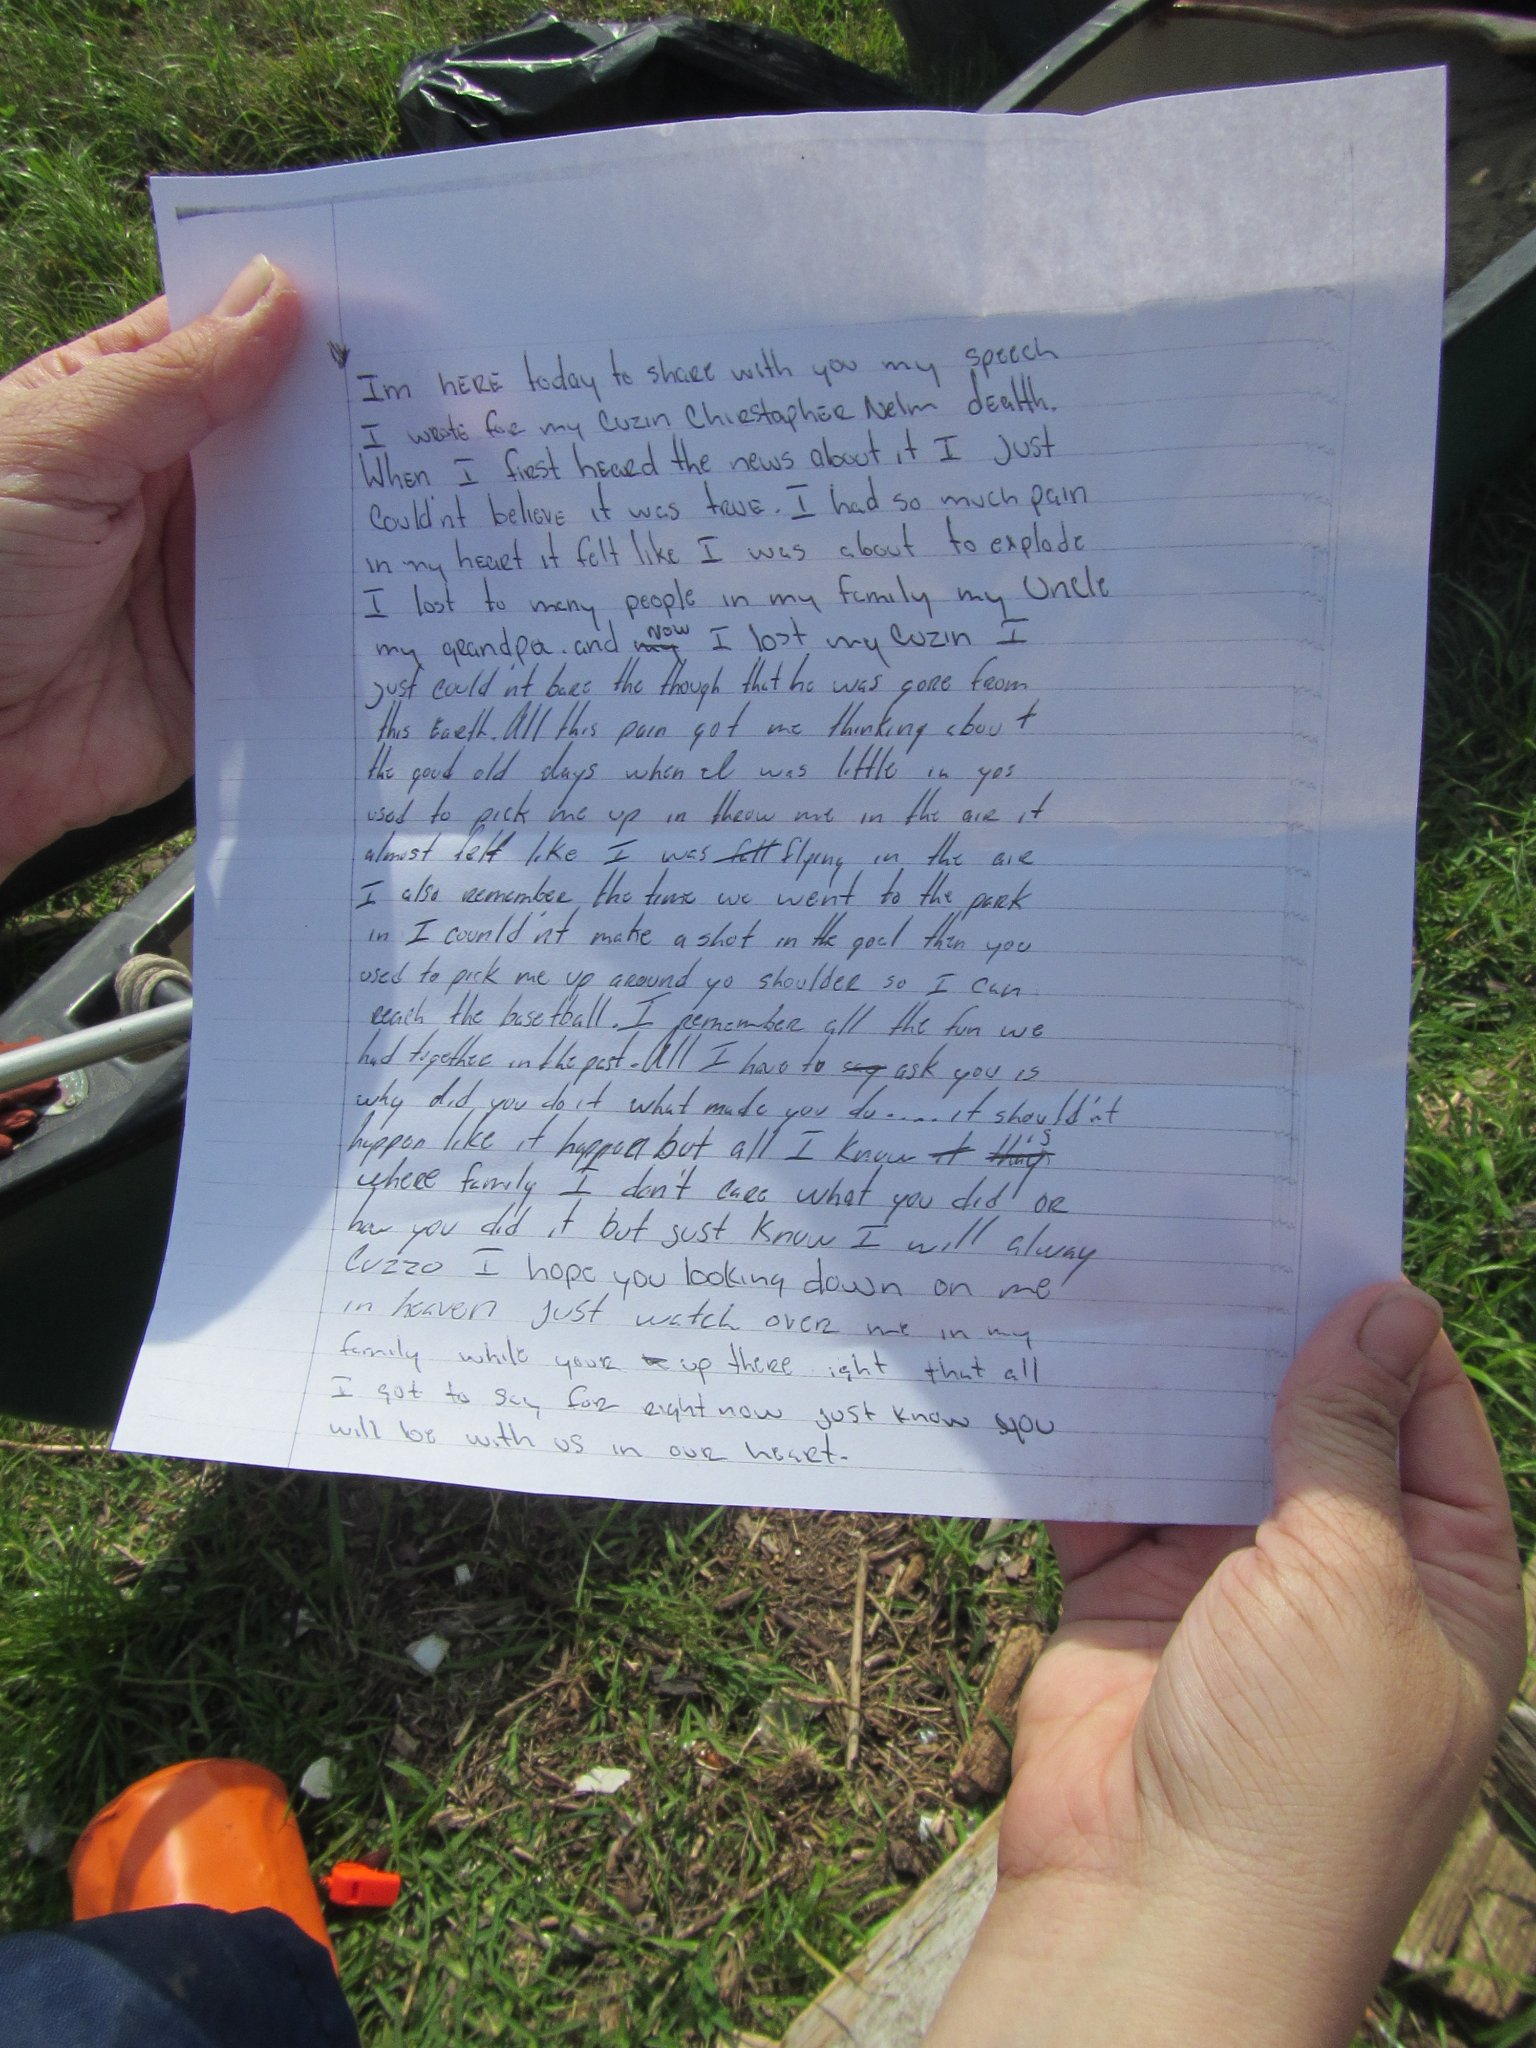 Im here today to share with you my speech
I wrote for my Cuzin Chirstapher Nelm death.
When I first heard the news about it I just
Could'nt believe it was true. I had so much pain
in my heart it felt like I was about to explode
I lost to many people in my family my Uncle
my grandpa. and my now I lost my Cuzin I
just could'nt bare the though that he was gone from
this Earth. All this pain got me thinking about
the good old days when I was little in yos
used to pick me up in throw me in the air it
almost felt like I was felt flying in the air
I also remember the time we went to the park
in I counld'nt make a shot in the goal then you
used to pick me up around yo shoulder so I can
reach the basetball. I remember all the fun we
had together in the past. All I have to say ask you is
why did you do it what made you do..... it should'nt
happen like it happen but all I know it this
where family I don't care what you did or
how you did it but just know I will alway
Cuzzo I hope you looking down on me
in heaven just watch over me in my
family while your up there ight that all
I got to say for right now just know you
will be with us in our heart.